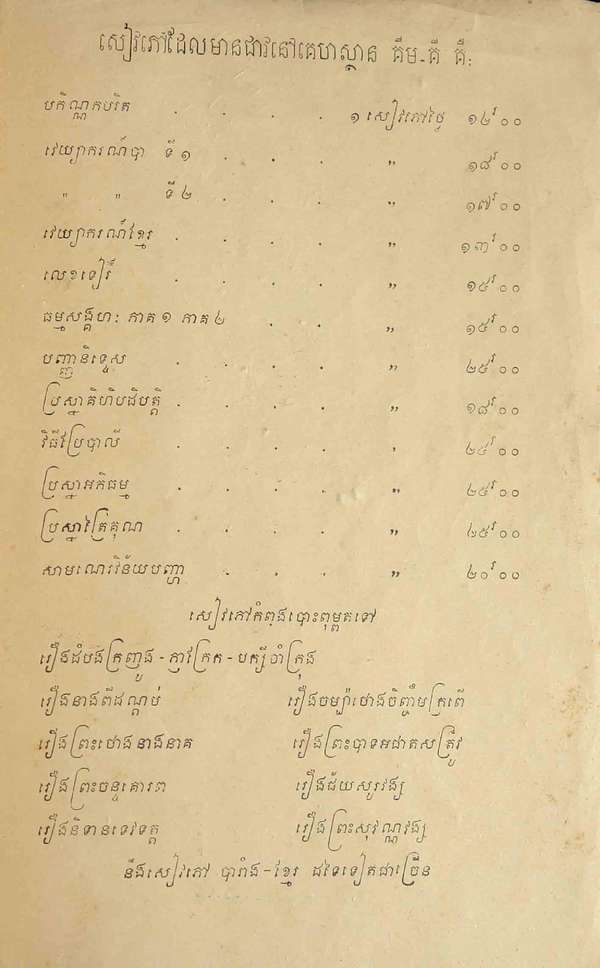 សៀវភៅដែលមានជាវនៅគេហស្ថាន គឹម-គី គឺ:
បកិណ្ណកបរិត . . . . ១ សៀវភៅថ្លៃ ១៤៛០០
វេយ្យាករណ៍បា ទី ១ . . . " ១៨៛០០
" " ទី ២ . . . " ១៧៛០០
វេយ្យាករណ៍ខ្មែរ . . . . " ១៣៛០០
លេខទៀវី . . . . " ១៥៛០០
ធម្មសង្គហៈ ភាគ ១ ភាគ ២ . . " ១៥៛០០
បញ្ញានិទ្ទេស . . . . " ២៥៛០០
ប្រស្នាគិហិបដិបត្តិ . . . . " ១៨៛០០
វិធីប្រែបាលី . . . . " ២៤៛០០
ប្រស្នាអភិធម្ម . . . . " ២៥៛០០
ប្រស្នាត្រៃគុណ . . . . " ២៥៛០០
សាមណេរវិន័យបញ្ហា . . . " ២០៛០០
សៀវភៅកំពុងបោះពុម្ពតទៅ
រឿងដំបងក្រញូង - ភ្ញាក្រែក - បក្សីចាំក្រុង
រឿងនាងពីដណ្ដប់ រឿងចម្ប៉ាថោងចិញ្ចឹមក្រពើ
រឿងព្រះថោងនាងនាគ រឿងព្រះបាទអជាតសត្រូវ
រឿងព្រះចន្ទគោរព រឿងជ័យសូរវង្ស
រឿងនិទានទេវទត្ត រឿងព្រះសុវណ្ណវង្ស
នឹងសៀវភៅ បារាំង-ខ្មែរ ដទៃទៀតជាច្រើន